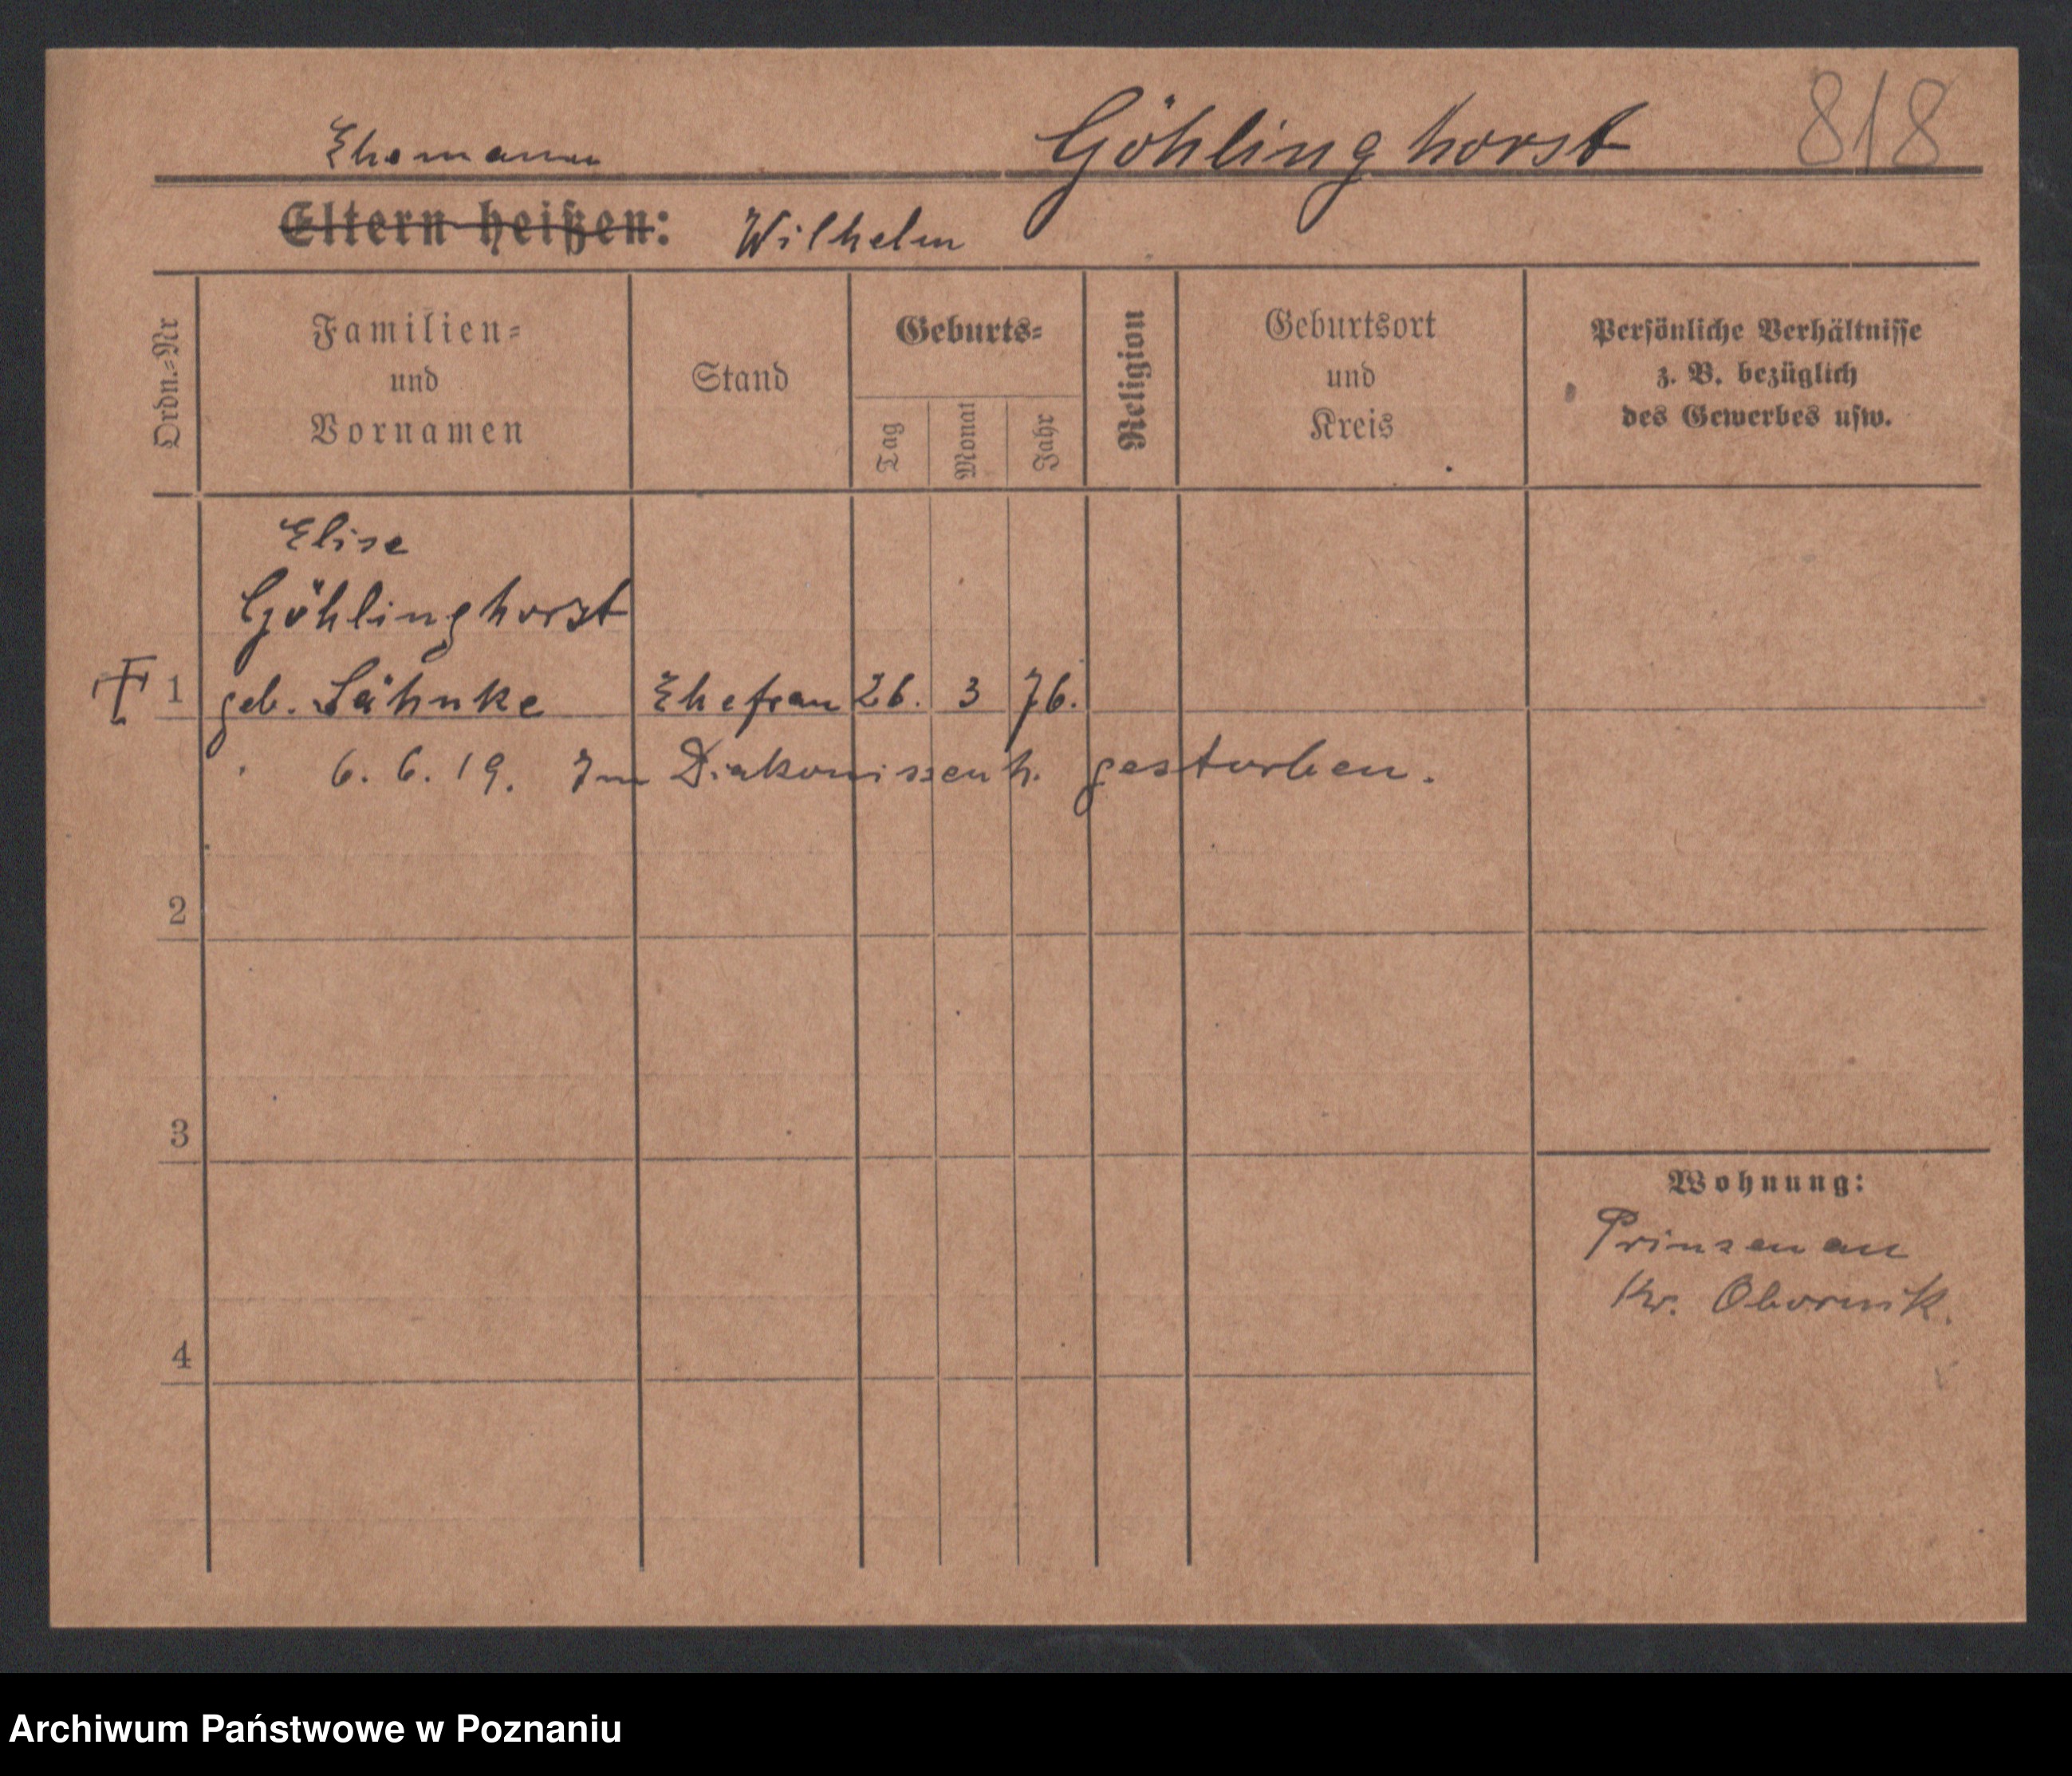 Ehemann Göhlinghorst 818
Eltern heißen: Wilhelm
Ordn.=Nr
Familien=
und
Vornamen
Stand
Geburts=
Tag
Monat
Jahr
Religion
Geburtsort
und
Kreis
Persönliche Verhältnisse
z. B. bezüglich
des Gewerbes usw.
Elise
Göhlinghorst
1 geb. Sähnke Ehefrau 26. 3 76.
6. 6. 19. Im Diakonissenh. gestorben.
2
3
Wohnung:
Prinzenau
Kr. Obornik.
4
Archiwum Państwowe w Poznaniu